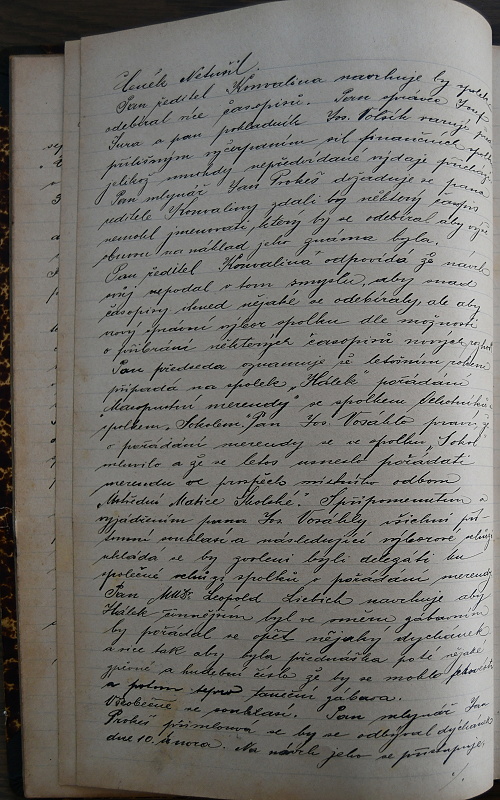 Čeněk Netušil.
Pan ředitel Konvalina navrhuje by spolek
odebíral více časopisů. Pan správce Josef
Jura a pan pokladník Jos. Volšík varují před
přílišným vyčerpáním sil finančních
jelikož mnohdy nepředvídané výdaje
Pan mlynář Jan Prokeš dožaduje se pana
ředitele Konvaliny zdali by některý časopis
nemohl jmenovati, který by se odebíral aby
sboru na náklad jeho známa byla.
Pan ředitel Konvalina odpovídá že návrh
svůj nepodal v tom smyslu, aby snad
časopisy ihned nějaké se odebíraly, ale aby
nový správní výbor spolku dle možnosti
o přibrání některých časopisů nových
Pan předseda oznamuje že letošním rokem
připadá na spolek "Hálek" pořádání
"Masopustní merendy" se spolkem
spolkem "Sokolem". Pan Jos. Vosáhlo praví, že
o pořádání merendy se ve spolku Sokol
mluvilo a že se letos usneslo pořádati
merendu ve prospěch místního odboru
"Ústřední Matice Školské". S připomenutím a
vyjádřením pana Jos. Vosáhly všichni
souhlasí a následující výborové schůzi
ukládá se by zvoleni byli delegáti ku
společné schůzi spolků o pořádání merendy.
Pan MUDr. Leopold Liebich navrhuje aby
Hálek činnějším byl ve směru zábavním
by pořádal se opět nějaký dýchánek
a sice tak aby byla přednáška poté nějaké
zpěvné a hudební číslo že by se mohlo
a potom taneční zábava.
Všeobecně se souhlasí. Pan mlynář Jan
Prokeš přimlouvá se by se odbýval dýchánek
dne 10. února. Na návrh jeho se přistupuje.